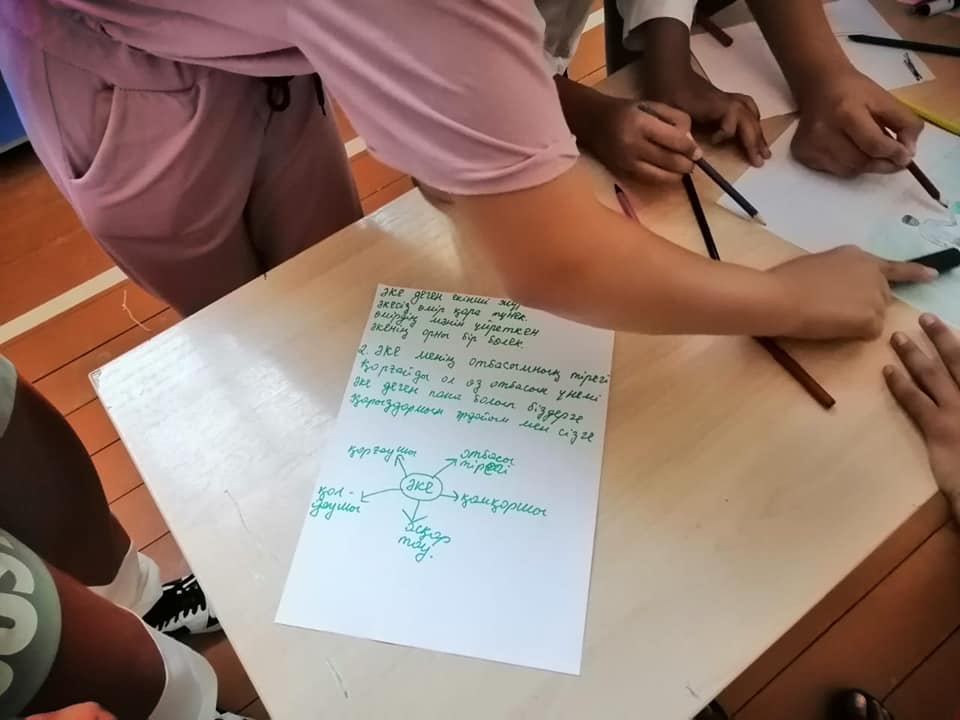 Әке деген екінші
Әкесіз өмір қара түнек.
Өмірдің мәнін үйреткен
Әкенің орны бір бөлек.
2. Әке менің отбасымның тірегі
Қорғайды ол өз отбасын үнемі
Әке деген пана болып біздерге
Қарыздармын әрдайым мен сізге
қорғаушы
отбасы
тірегі
Әке
қол-
даушы
қамқоршы
асқар
тау.